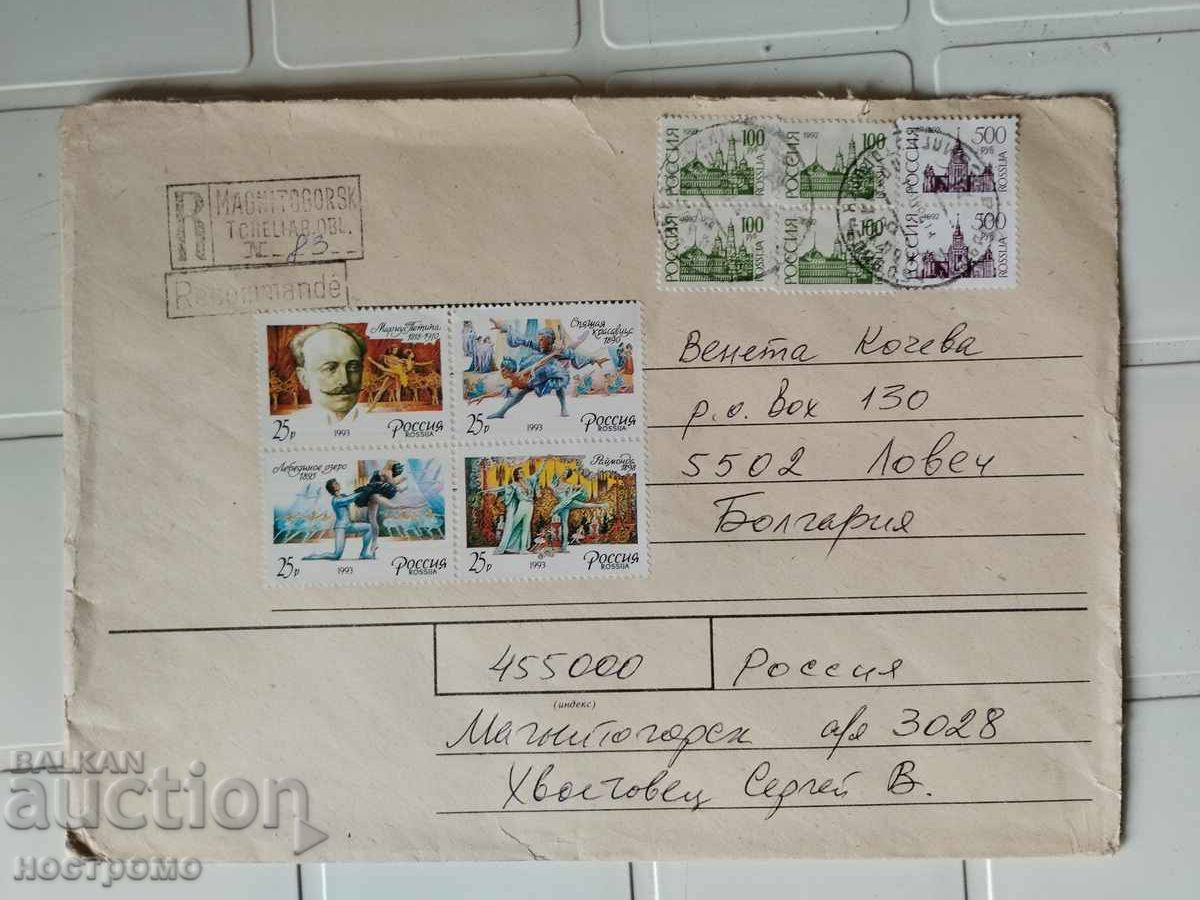 R MAGNITOGORSK
TCHELIAB. OBL.
№ 83
Recommandé
РОССИЯ 1992 100 РУБ ROSSIJA
РОССИЯ 1992 100 РУБ ROSSIJA
РОССИЯ 1992 500 РУБ ROSSIJA
РОССИЯ 1992 100 РУБ ROSSIJA
РОССИЯ 1992 100 РУБ ROSSIJA
РОССИЯ 1992 500 РУБ ROSSIJA
Мариус Петипа
1818-1910
25р 1993 Россия
ROSSIJA
Спящая красавица
1890
25р 1993 Россия
ROSSIJA
Лебединое озеро
1895
25р 1993 Россия
ROSSIJA
Раймонда
1898
25р 1993 Россия
ROSSIJA
Венета Кочева
p.o. Box 130
5502 Ловеч
Болгария
455000 Россия
(индекс)
Магнитогорск а/я 3028
Хвостовец Сергей В.
BALKAN
auction
ностромо